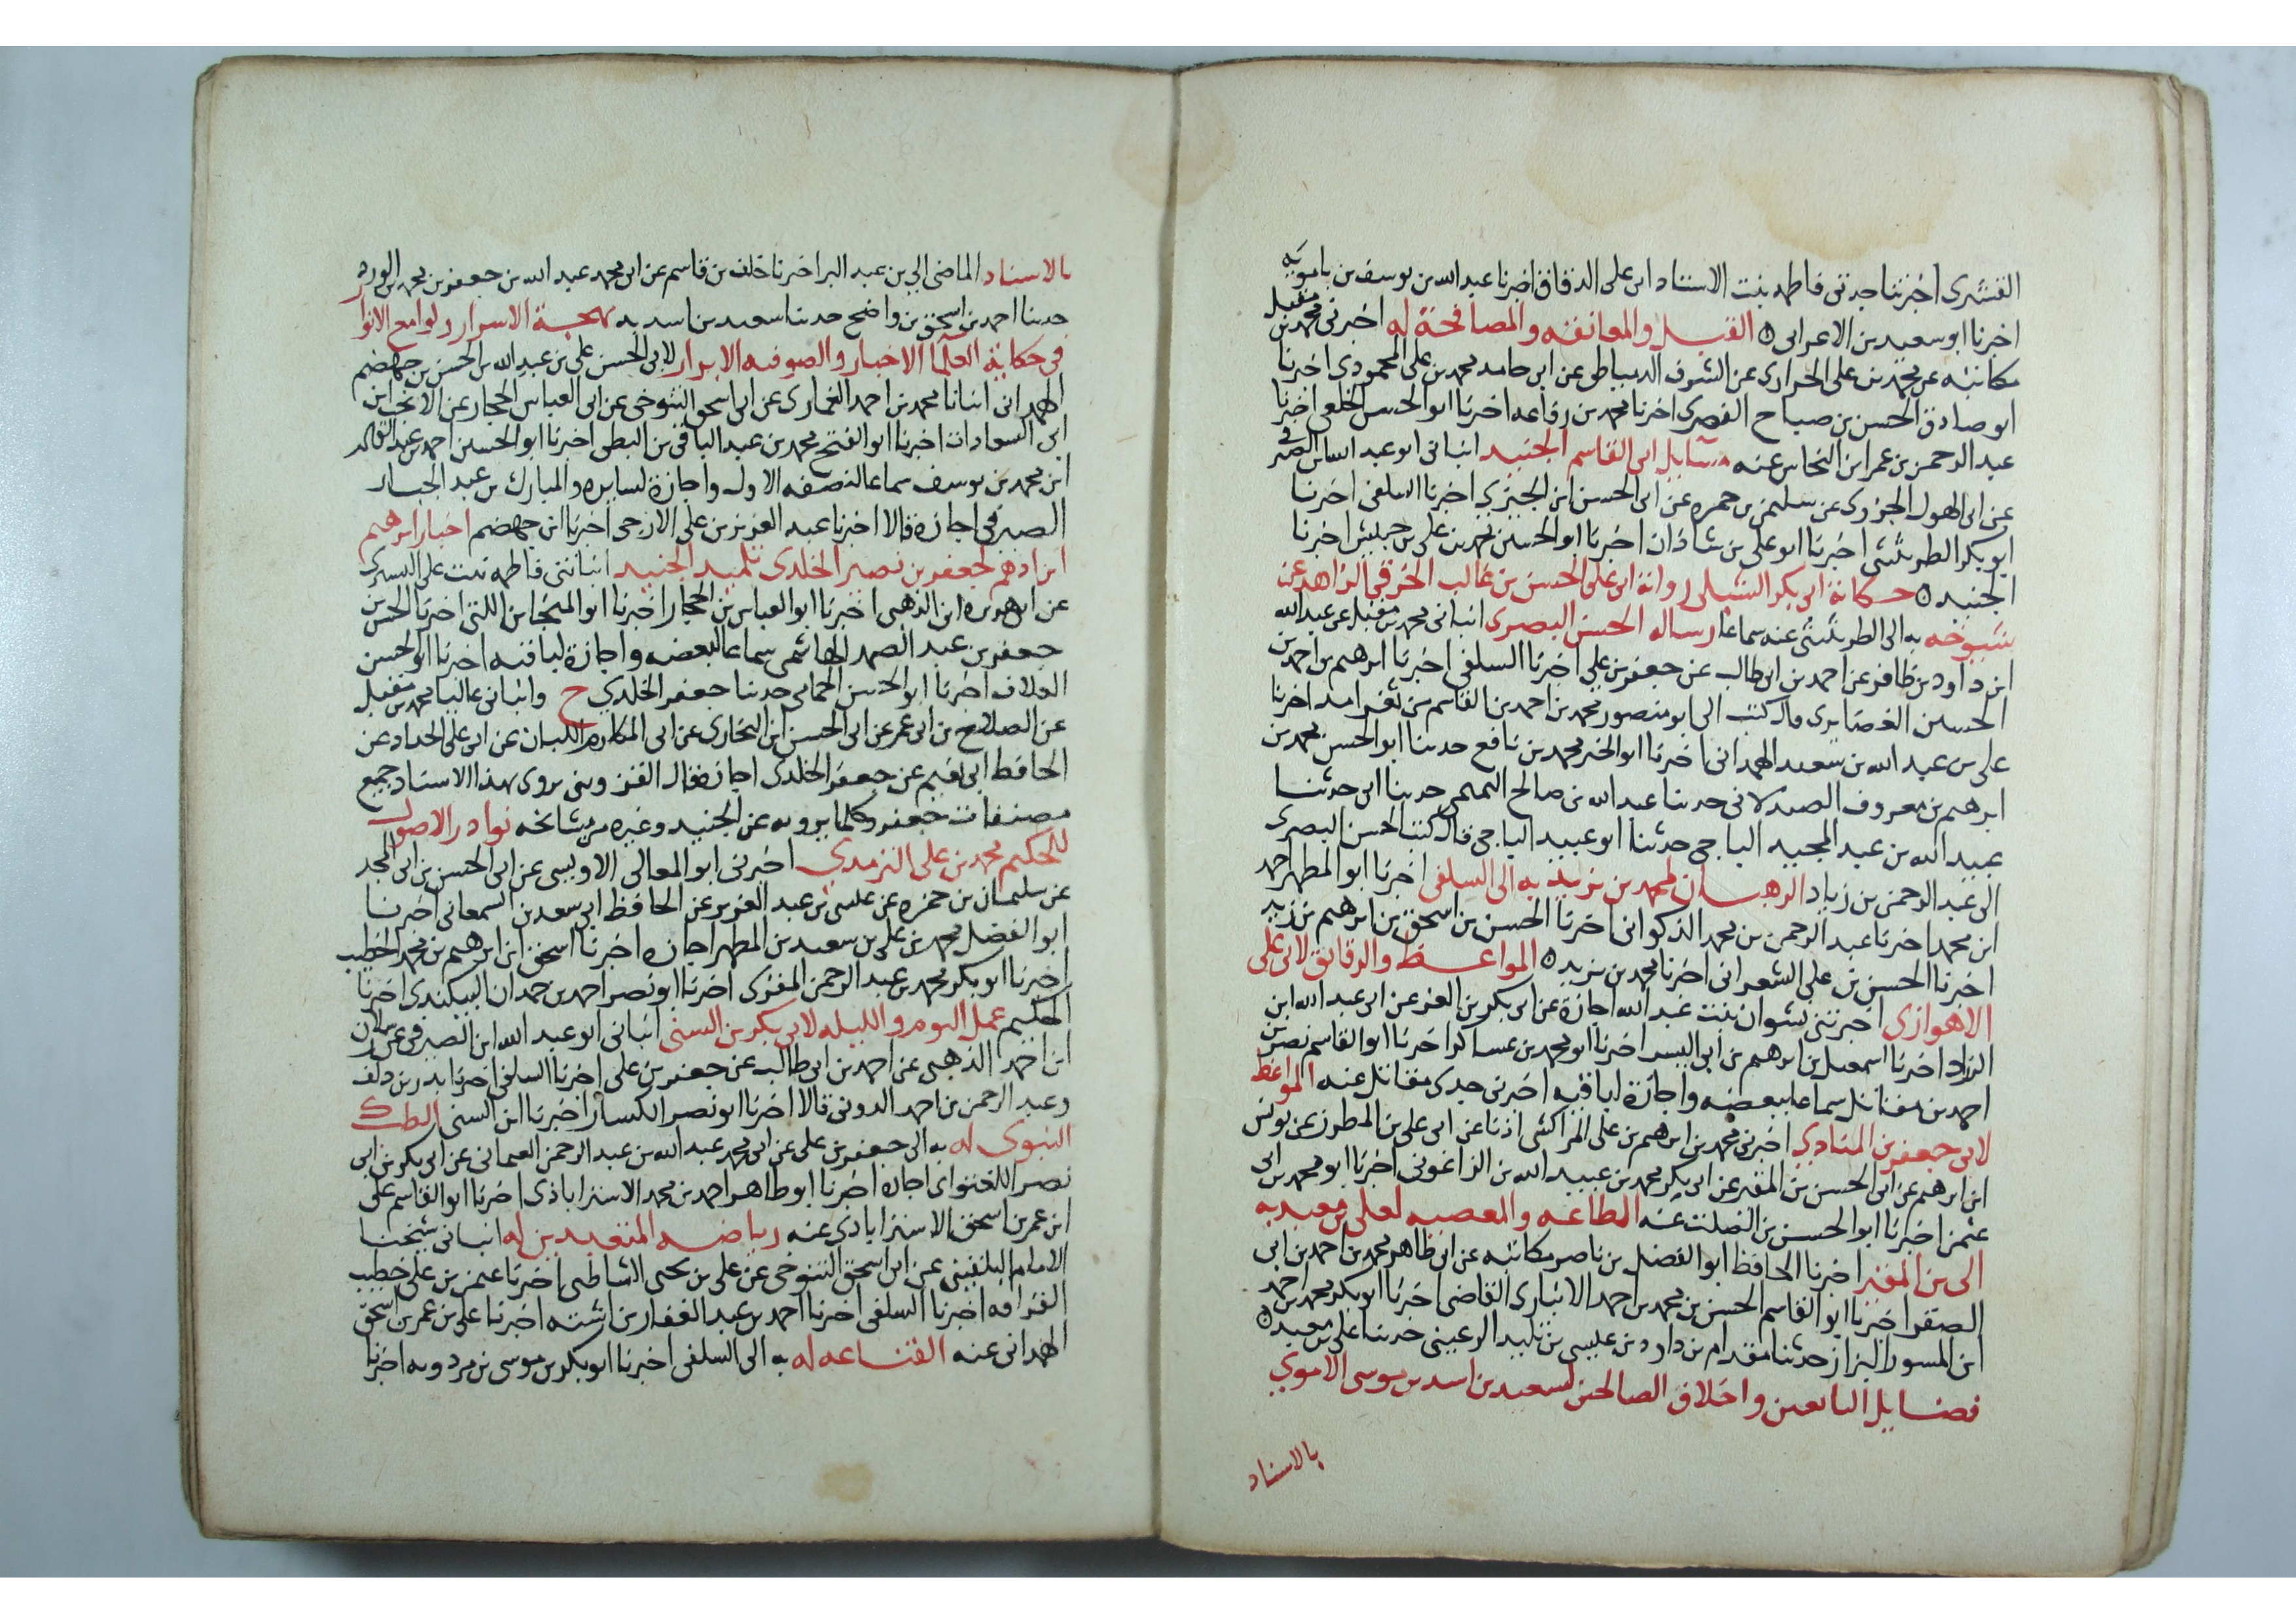 القشيرى اخبرتنا جدتى فاطمه بنت الاستاد ابى على الدقاق اخبرنا عبد الله بن يوسف بن بامويه
اخبرنا ابو سعيد بن الاعرابى ٥ القبل والمعانقه والمصافحة له اخبرنى محمد بن مقبل
مكاتبه عن محمد بن على الحراوى عن الشرف الدمياطى عن ابى حامد محمد بن على المحمودى اخبرنا
ابو صادق الحسن بن صباح المصرى اخبرنا محمد بن رفاعه اخبرنا ابو الحسن الخلعى اخبرنا
عبد الرحمن بن عمر ابن النحاس عنه مسايل ابى القاسم الجنيد انبانى ابو عبد الله ابن الصيرفى
عن ابى الهول الجزرى عن سليمن بن حمزه عن ابى الحسن ابن الجميزى اخبرنا السلفى اخبرنا
ابو بكر الطريثيثى اخبرنا ابو على بن شاذان اخبرنا ابو الحسين محمد بن على بن حبيش اخبرنا
الجنيد ٥ حكاية ابى بكر الشبلى رواية ابى على الحسن بن غالب الحرفى الزاهد عن
شيوخه به الى الطريثيثى عنه سماعا رساله الحسن البصرى انبانى محمد بن مقبل عن عبد الله
ابن داود بن ظافر عن احمد بن ابى طالب عن جعفر بن على اخبرنا السلفى اخبرنا ابرهيم بن احمد بن
الحسين الغضايرى قال كتب الى ابو منصور محمد بن احمد بن القاسم من ثغر امد اخبرنا
على بن عبد الله بن سعيد الهمدانى اخبرنا ابو الخير محمد بن نافع حدثنا ابو الحسن محمد بن
ابرهيم بن معروف الصيدلانى حدثنا عبد الله بن صالح التميمى حدثنا ابى حدثنا
عبيد الله بن عبد المجيد الباجى حدثنا ابو عبيد الباجى قال كتب الحسن البصرى
الى عبد الرحمن بن زياد الرهبان لمحمد بن يزيد به الى السلفى اخبرنا ابو المطهر احمد
ابن محمد اخبرنا عبد الرحمن بن محمد الذكوانى اخبرنا الحسن بن اسحق بن ابرهيم بن زيد
اخبرنا الحسن بن على الشعرانى اخبرنا محمد بن يزيد ٥ المواعظ والرقايق لابى على
الاهوازى اخبرتنى نشوان بنت عبد الله اجازة عن ابى بكر بن العز عن ابى عبد الله ابن
الزراد اخبرنا اسمعيل بن ابرهيم بن ابى اليسر اخبرنا ابو محمد بن عساكر اخبرنا ابو القاسم نصر بن
احمد بن مقاتل سماعا لبعضه واجازة لباقيه اخبرنى جدى مقاتل عنه المواعظ
لابى جعفر بن المنادى اخبرنى محمد بن ابرهيم بن على المراكشى اذنا عن ابى على بن المطرز عن يونس
ابن ابرهيم عن ابى الحسن بن المقير عن ابى بكر محمد بن عبيد الله بن الزاغونى اخبرنا ابو محمد بن ابى
عثمن اخبرنا ابو الحسن بن الصلت عنه الطاعه والمعصيه لعلى بن معبد به
الى بن المقير اخبرنا الحافظ ابو الفضل بن ناصر مكاتبه عن ابى طاهر محمد بن احمد بن ابى
الصقر اخبرنا ابو القاسم الحسن بن محمد بن احمد الانبارى القاضى اخبرنا ابو بكر محمد بن احمد
ابن المسور البزاز حدثنا مقدام بن داود بن عيسى بن تليد الرعينى حدثنا على بن معبد ٥
فضايل التابعين واخلاق الصالحين لسعيد بن اسد بن موسى الاموى
بالاسناد
بالاسناد الماضى الى بن عبد البر اخبرنا خلف بن قاسم عن ابى محمد عبد الله بن جعفر بن محمد بن الورد
حدثنا احمد بن اسحق بن واضح حدثنا سعيد بن اسد به بهجة الاسرار ولوامع الانوار
فى حكاية العلما الاخيار والصوفيه الابرار لابى الحسن على بن عبد الله بن الحسن بن جهضم
الهمدانى انبانا محمد بن احمد الغمارى عن ابى اسحق التنوخى عن ابى العباس الحجار عن الانجب ابن
ابى السعادات اخبرنا ابو الفتح محمد بن عبد الباقى بن البطى اخبرنا ابو الحسين احمد بن عبد القادر
ابن محمد بن يوسف سماعا لنصفه الاول واجازة لسايره والمبارك بن عبد الجبار
الصيرفى اجازة قالا اخبرنا عبد العزيز بن على الازجى اخبرنا ابن جهضم اخبار ابرهيم
ابن ادهم لجعفر بن نصير الخلدى تلميذ الجنيد انباتنى فاطمه بنت على اليسرى
عن ابى هريره ابن الذهبى اخبرنا ابو العباس بن الحجار اخبرنا ابو المنجا بن اللتى اخبرنا الحسن بن
جعفر بن عبد الصمد الهاشمى سماعا لبعضه واجازة لباقيه اخبرنا ابو الحسن
العلاف اخبرنا ابو الحسن الحمامى حدثنا جعفر الخلدى ح وانبانى عاليا محمد بن مقبل
عن الصلاح بن ابى عمر عن ابى الحسن ابن البخارى عن ابى المكارم اللبان عن ابى على الحداد عن
الحافظ ابى نعيم عن جعفر الخلدى اجازة قال العز وبنى يروى بهذا الاسناد جميع
مصنفات جعفر وكلما يرويه عن الجنيد وغيره من مشايخه نوادر الاصول
للحكيم محمد بن على الترمدى اخبرنى ابو المعالى الاويسى عن ابى الحسن بن ابى المجد
عن سليمان بن حمزه عن عيسى بن عبد العزيز عن الحافظ ابى سعد بن السمعانى اخبرنا
ابو الفضل محمد بن على بن سعيد بن المطهر اجازه اخبرنا اسحق ابن ابرهيم بن محمد الخطيب
اخبرنا ابو بكر محمد بن عبد الرحمن المقرى اخبرنا ابو نصر احمد بن حمدان البيكندى اخبرنا
الحكيم عمل اليوم والليله لابى بكر بن السنى انبانى ابو عبد الله ابن الصيرفى عن ارسلان
ابن احمد الذهبى عن احمد بن ابى طالب عن جعفر بن على اخبرنا السلفى اخبرنا بدر بن دلف
وعبد الرحمن بن احمد الدونى قالا اخبرنا ابو نصر الكسار اخبرنا ابن السنى الطب
النبوى له به الى جعفر بن على عن ابى محمد عبد الله بن عبد الرحمن العثمانى عن ابى بكر بن ابى
نصر اللفتوانى اجازه اخبرنا ابو طاهر احمد بن محمد الاستراباذى اخبرنا ابو القاسم على
ابن عمر بن اسحق الاستراباذى عنه رياضه المتعبدين له انبانى شيخنا
الامام البلقينى عن ابى اسحق التنوخى عن على بن يحيى الشاطبى اخبرنا عثمن بن على خطيب
القرافه اخبرنا السلفى اخبرنا احمد بن عبد الغفار بن اشته اخبرنا على بن عمر بن اسحق
الهمدانى عنه القناعه له به الى السلفى اخبرنا ابو بكر بن موسى بن مردويه اخبرنا